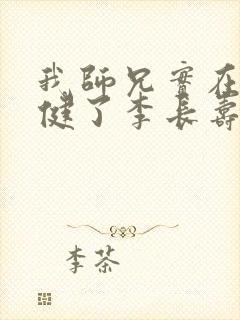 我師兄實在
健了李長壽
李茶